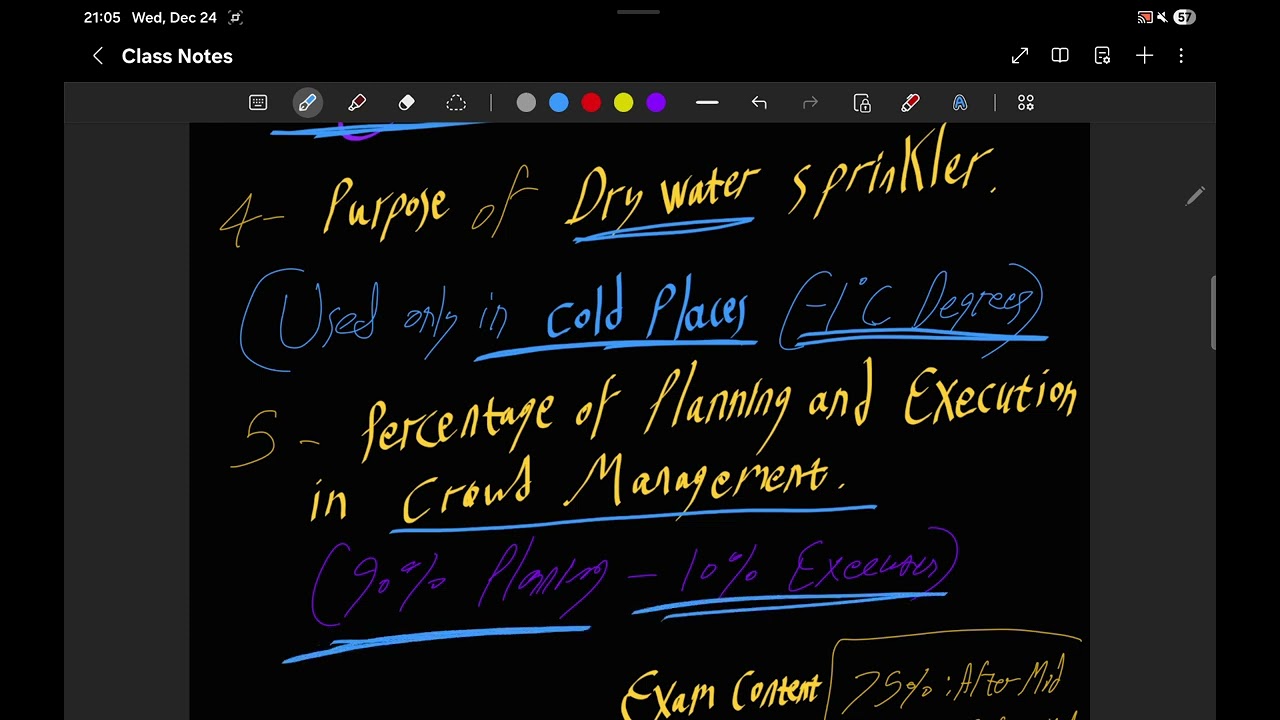 21:05 Wed, Dec 24
57
Class Notes
4- Purpose of Dry water sprinkler.
(Used only in cold Places (-1°C Degrees)
5- Percentage of Planning and Execution
in Crowd Management.
(90% Planning - 10% Execution)
Exam Content
75% : After Mid